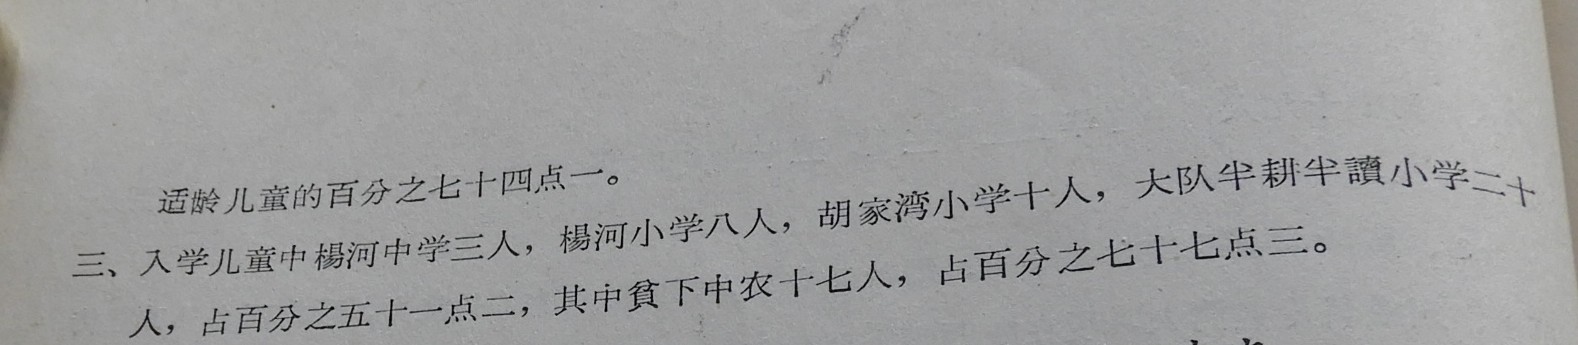 适龄儿童的百分之七十四点一。
三、入学儿童中楊河中学三人，楊河小学八人，胡家湾小学十人，大队半耕半讀小学二十
人，占百分之五十一点二，其中貧下中农十七人，占百分之七十七点三。